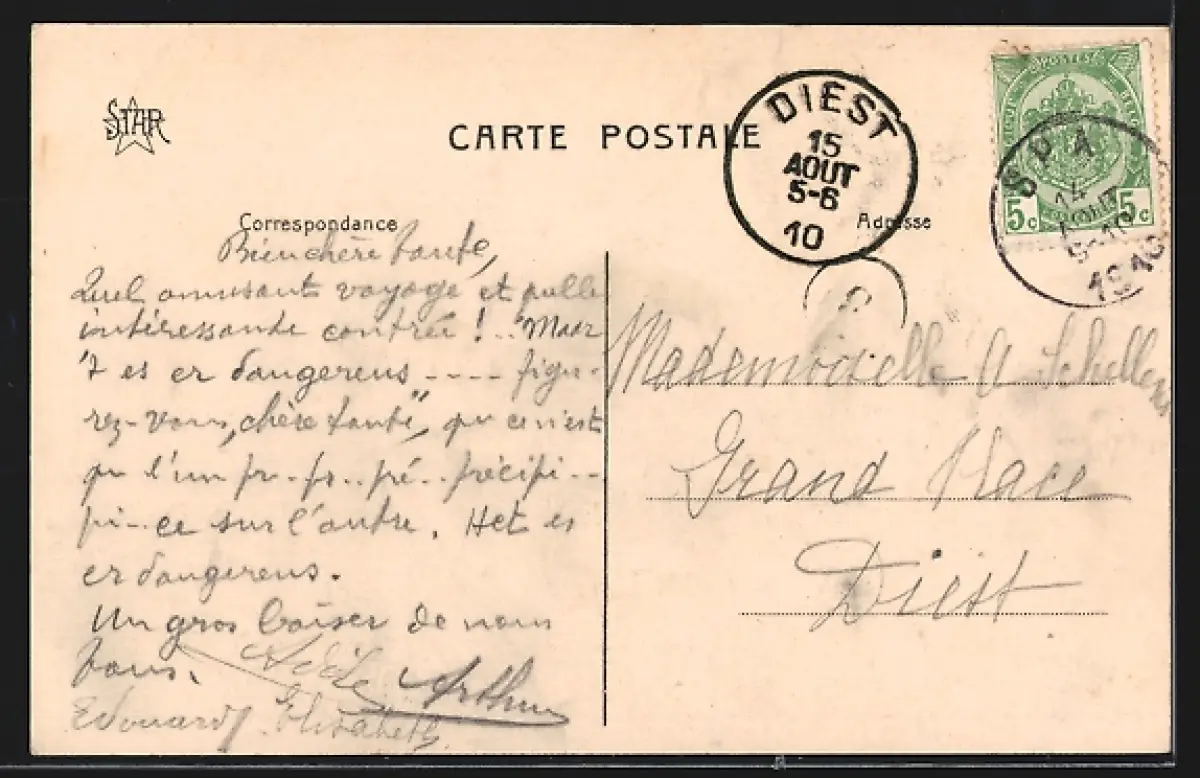 STAR
CARTE POSTALE
DIEST
15
AOUT
5-6
10
POSTES
5c 5c
SPA
14
AOUT
1910
Correspondance
Adresse
Bien chère tante,
Quel amusant voyage et quelle
intéressante contrée ! .. "Maar
't es er dangereus ---- figu-
rez-vous, chère tante", que ce n'est
qu l'un pr..pr..pré..précipi--
pi--ce sur l'autre. Het es
er dangereus.
Un gros baiser de nous
tous.
Adèle Arthur
Edouard Elisabeth
Mademoiselle A Schellens
Grand Place
Diest